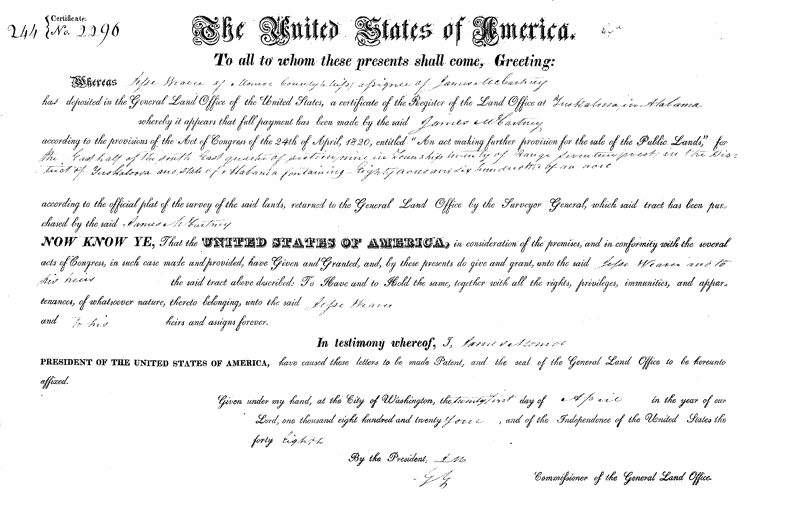 244 { Certificate. No. 2296
The United States of America.
To all to whom these presents shall come, Greeting:
Whereas Jesse Weaver of Monroe County assignee of James McCartney
has deposited in the General Land Office of the United States, a certificate of the Register of the Land Office at Tuskaloosa in Alabama
whereby it appears that full payment has been made by the said James McCartney
according to the provisions of the Act of Congress of the 24th of April, 1820, entitled "An act making further provision for the sale of the Public Lands," for
the East half of the South East quarter of section nine in Township twenty of Range fourteen west in the Dis-
trict of Tuskaloosa and state of Alabama containing Eighty acres and six hundredths of an acre
according to the official plat of the survey of the said lands, returned to the General Land Office by the Surveyor General, which said tract has been pur-
chased by the said James McCartney
NOW KNOW YE, That the UNITED STATES OF AMERICA, in consideration of the premises, and in conformity with the several
acts of Congress, in such case made and provided, have Given and Granted, and, by these presents do give and grant, unto the said Jesse Weaver and to
his heirs the said tract above described: To Have and to Hold the same, together with all the rights, privileges, immunities, and appur-
tenances, of whatsoever nature, thereto belonging, unto the said Jesse Weaver
and to his heirs and assigns forever.
In testimony whereof, I, James Monroe
PRESIDENT OF THE UNITED STATES OF AMERICA, have caused these letters to be made Patent, and the seal of the General Land Office to be hereunto
affixed.
Given under my hand, at the City of Washington, the twenty first day of April in the year of our
Lord, one thousand eight hundred and twenty four, and of the Independence of the United States the
forty Eighth
By the President, J M
G G Commissioner of the General Land Office.